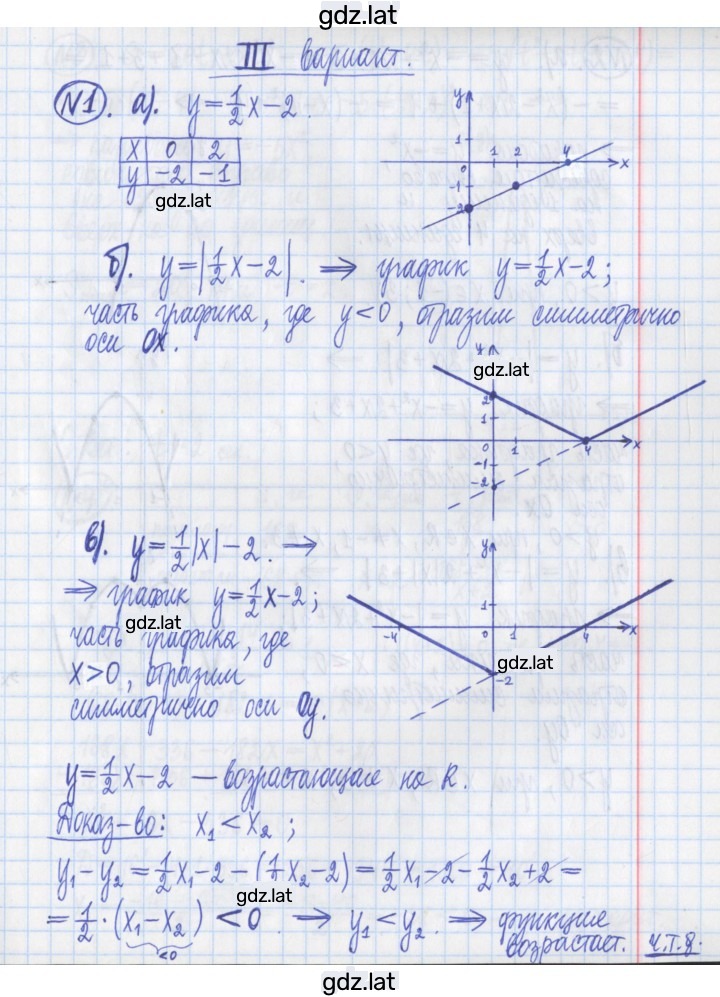 gdz.lat
III вариант.
№1. а). y = 1/2 x - 2.
x 0 2
y -2 -1
gdz.lat
y 1 0 1 2 4 x -1 -2
б). y = |1/2 x - 2|. ⇒ график y = 1/2 x - 2;
часть графика, где y < 0, отразим симметрично
оси Ox.
y gdz.lat 2 1 0 1 4 x -1 -2
в). y = 1/2 |x| - 2. ⇒
⇒ график y = 1/2 x - 2;
часть графика, где
gdz.lat
x > 0, отразим
симметрично оси Oy.
y 1 -4 0 1 4 x -2
gdz.lat
y = 1/2 x - 2 — возрастающая на R.
Доказ-во: x₁ < x₂;
y₁ - y₂ = 1/2 x₁ - 2 - (1/2 x₂ - 2) = 1/2 x₁ - 2 - 1/2 x₂ + 2 =
gdz.lat
= 1/2 · (x₁ - x₂) < 0. ⇒ y₁ < y₂. ⇒ функция
<0
возрастает. ч.т.д.
gdz.lat